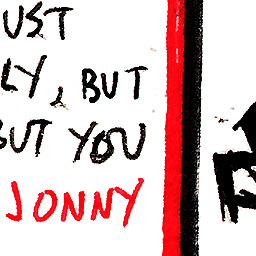 UST
LY, BUT
BUT YOU
JONNY